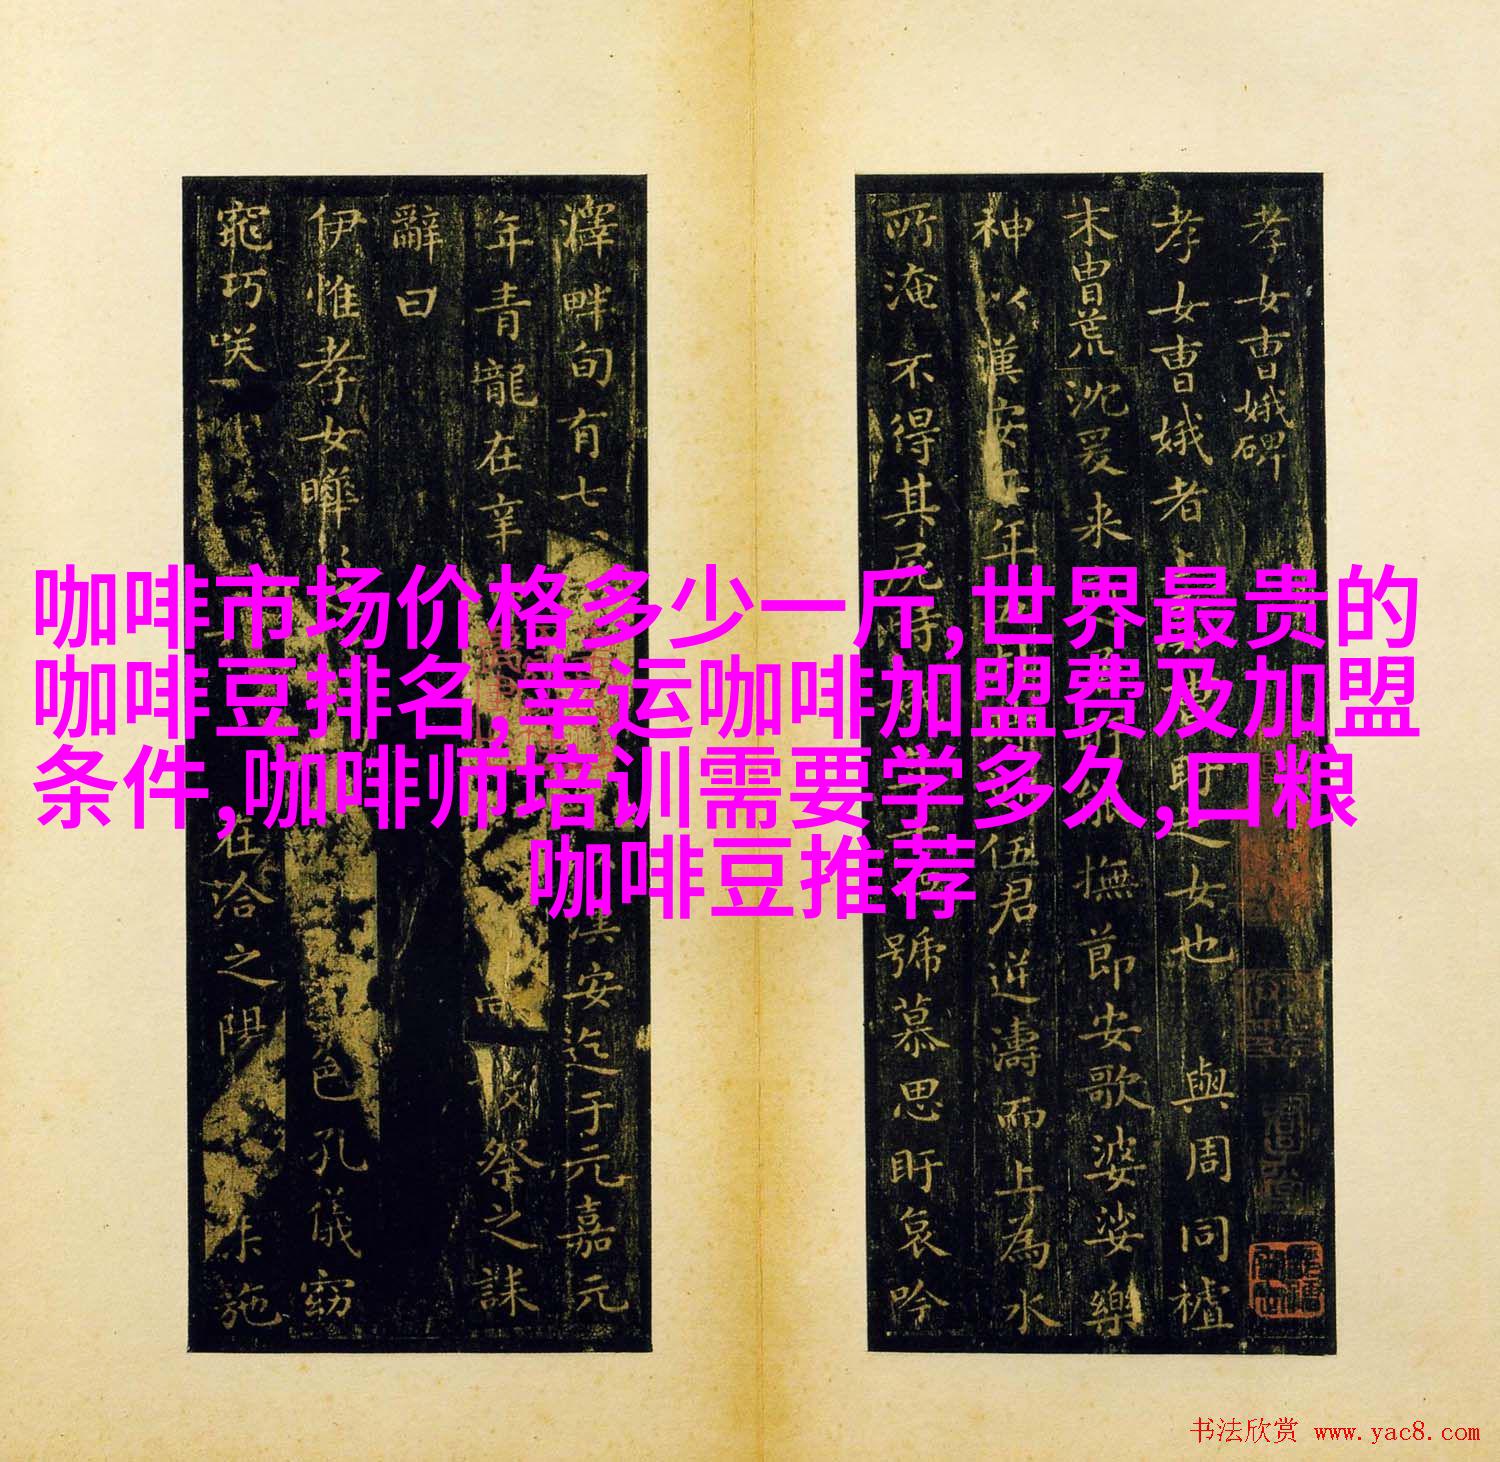 孝女曹娥碑
孝女曹娥者上虞曹盱之女也其先與周同祖
末胄荒沈爰来適居盱能撫節安歌婆娑樂
神以漢安二年五月時迎伍君逆濤而上為水
所淹不得其屍時娥年十四號慕思盱哀吟
澤畔旬有七
漢安迄于元嘉元
年青龍在辛
祭之誄
辭曰
伊惟孝女曄
色孔儀窈
窕巧咲
在洽之陽
施
咖啡市场价格多少一斤,世界最贵的
咖啡豆排名,幸运咖啡加盟费及加盟
条件,咖啡师培训需要学多久,口粮
咖啡豆推荐
书法欣赏 www.yac8.com